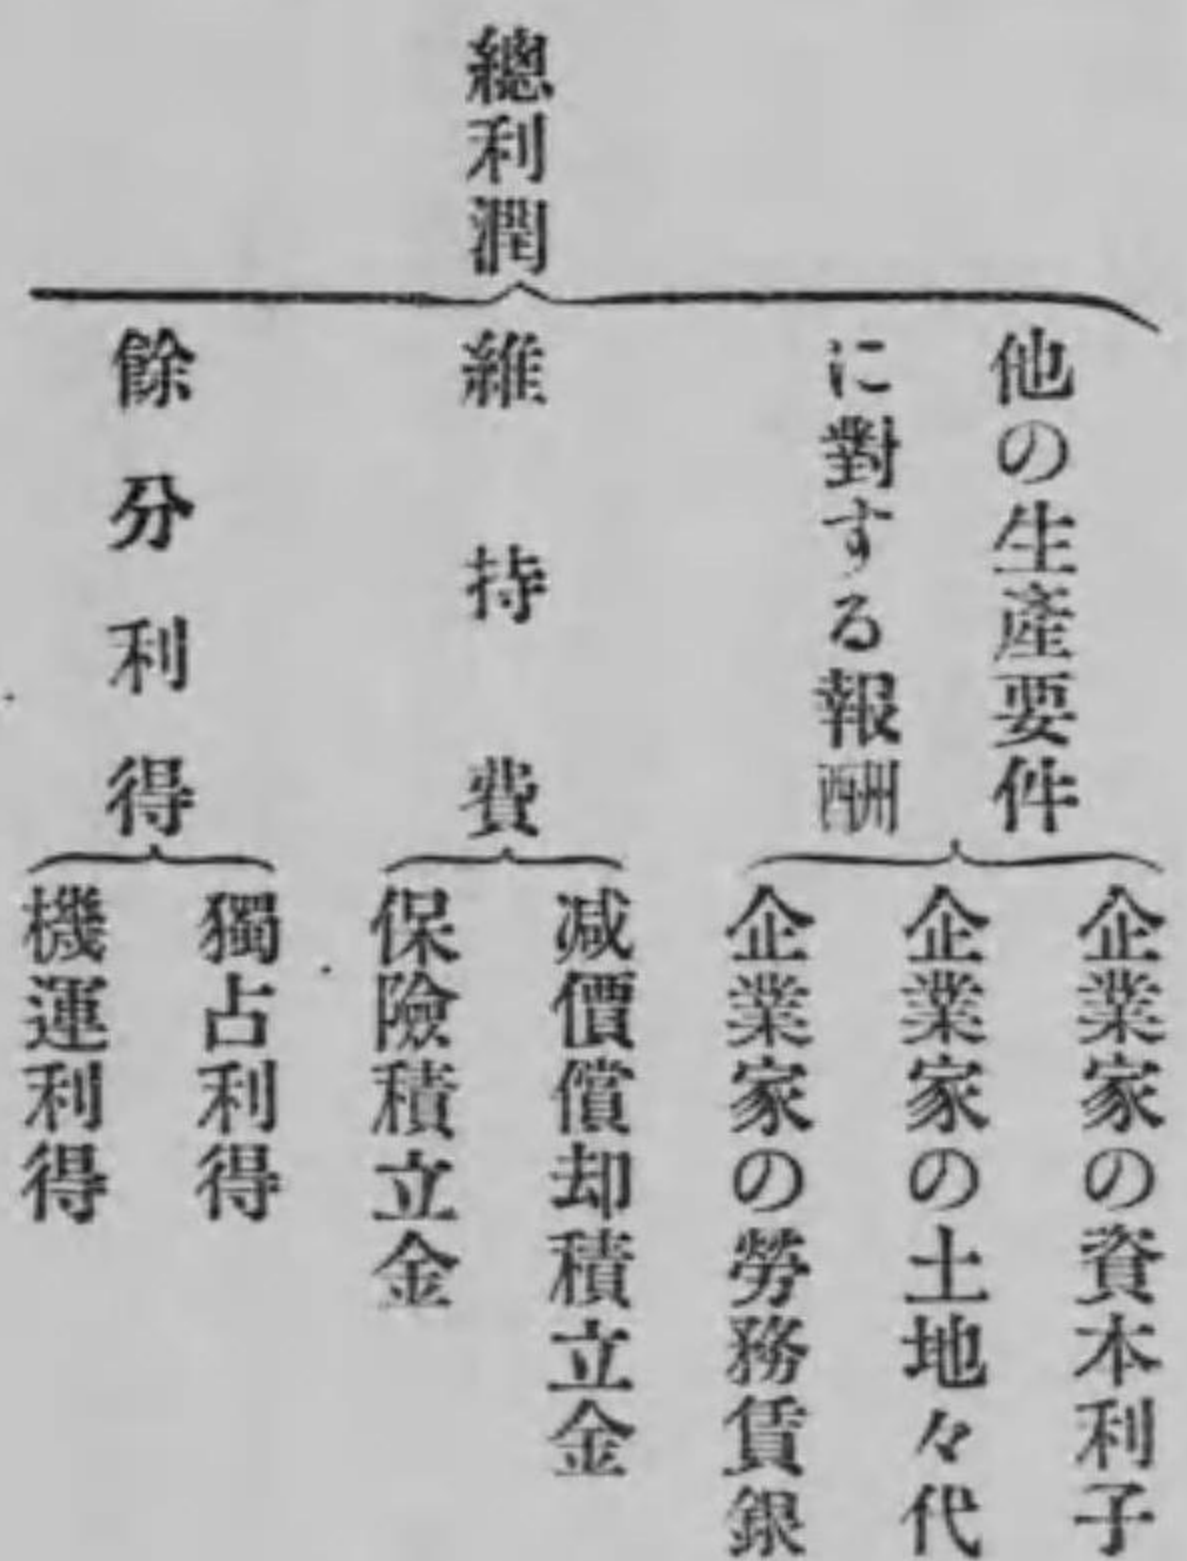 總利潤
他の生產要件
に對する報酬
企業家の資本利子
企業家の土地々代
企業家の勞務賃銀
維持費
减價償却積立金
保險積立金
餘分利得
獨占利得
機運利得